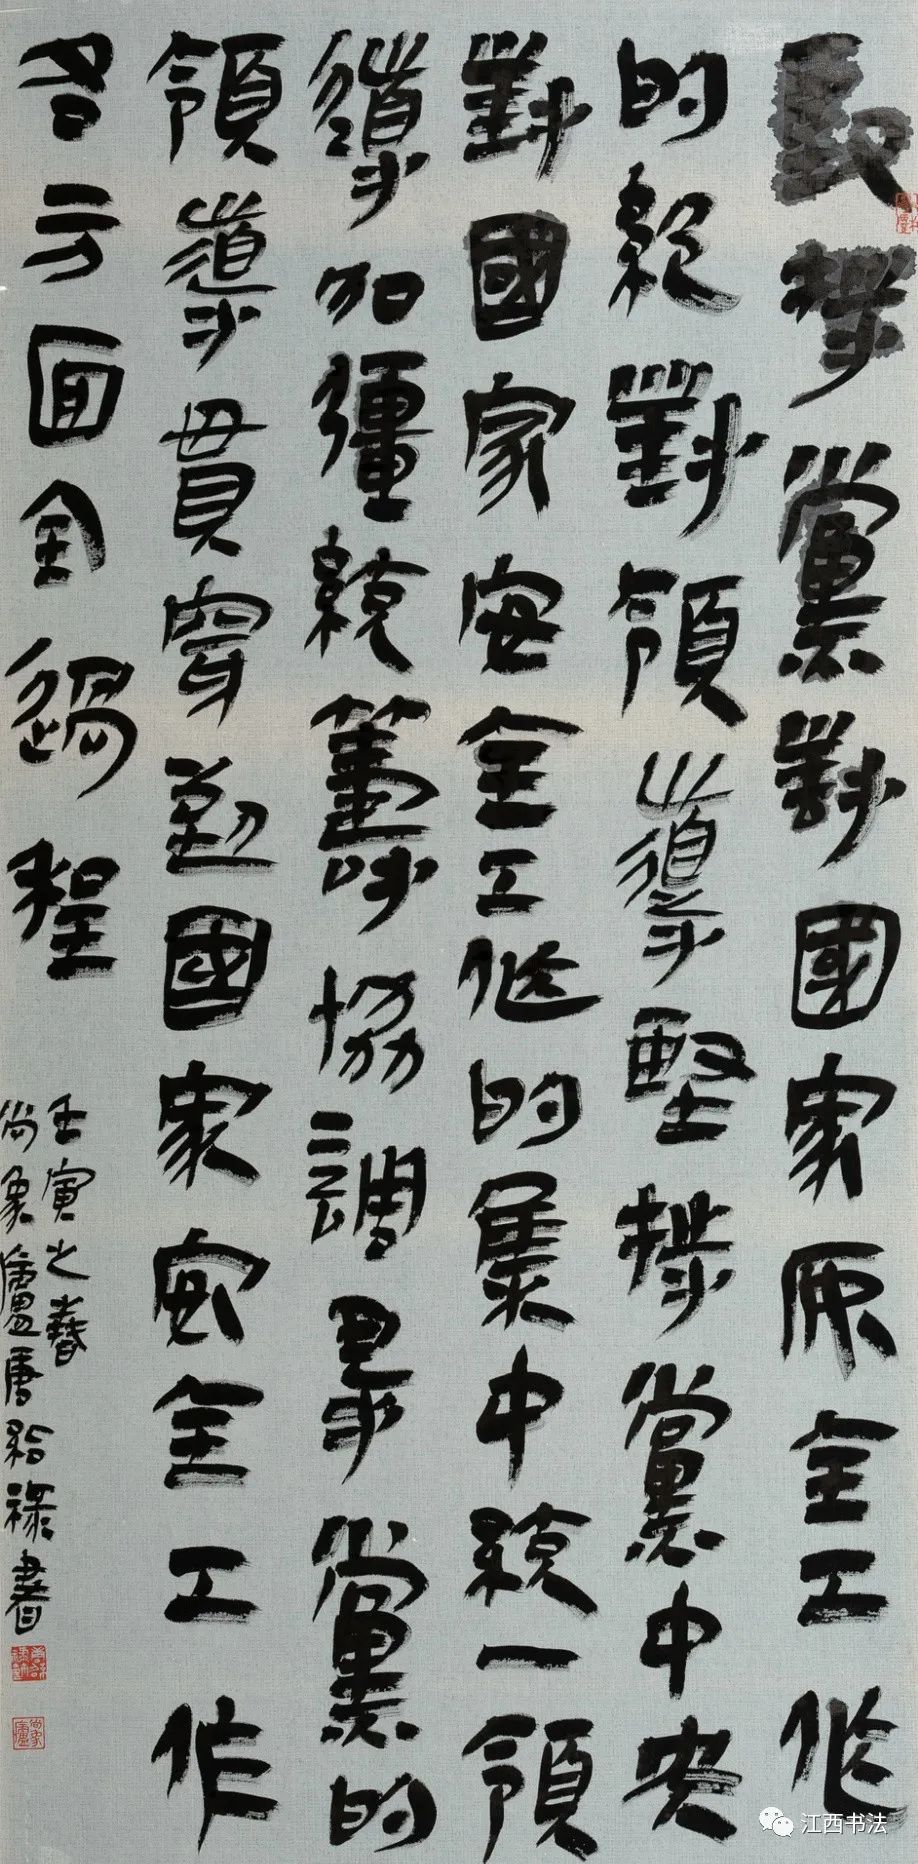 堅持黨對國家安全工作
的絕對領導堅持黨中央
對國家安全工作的集中統一領
導加强統籌協調把黨的
領導貫穿到國家安全工作
各方面全過程
壬寅之春
尚象廬唐給祿書
江西书法